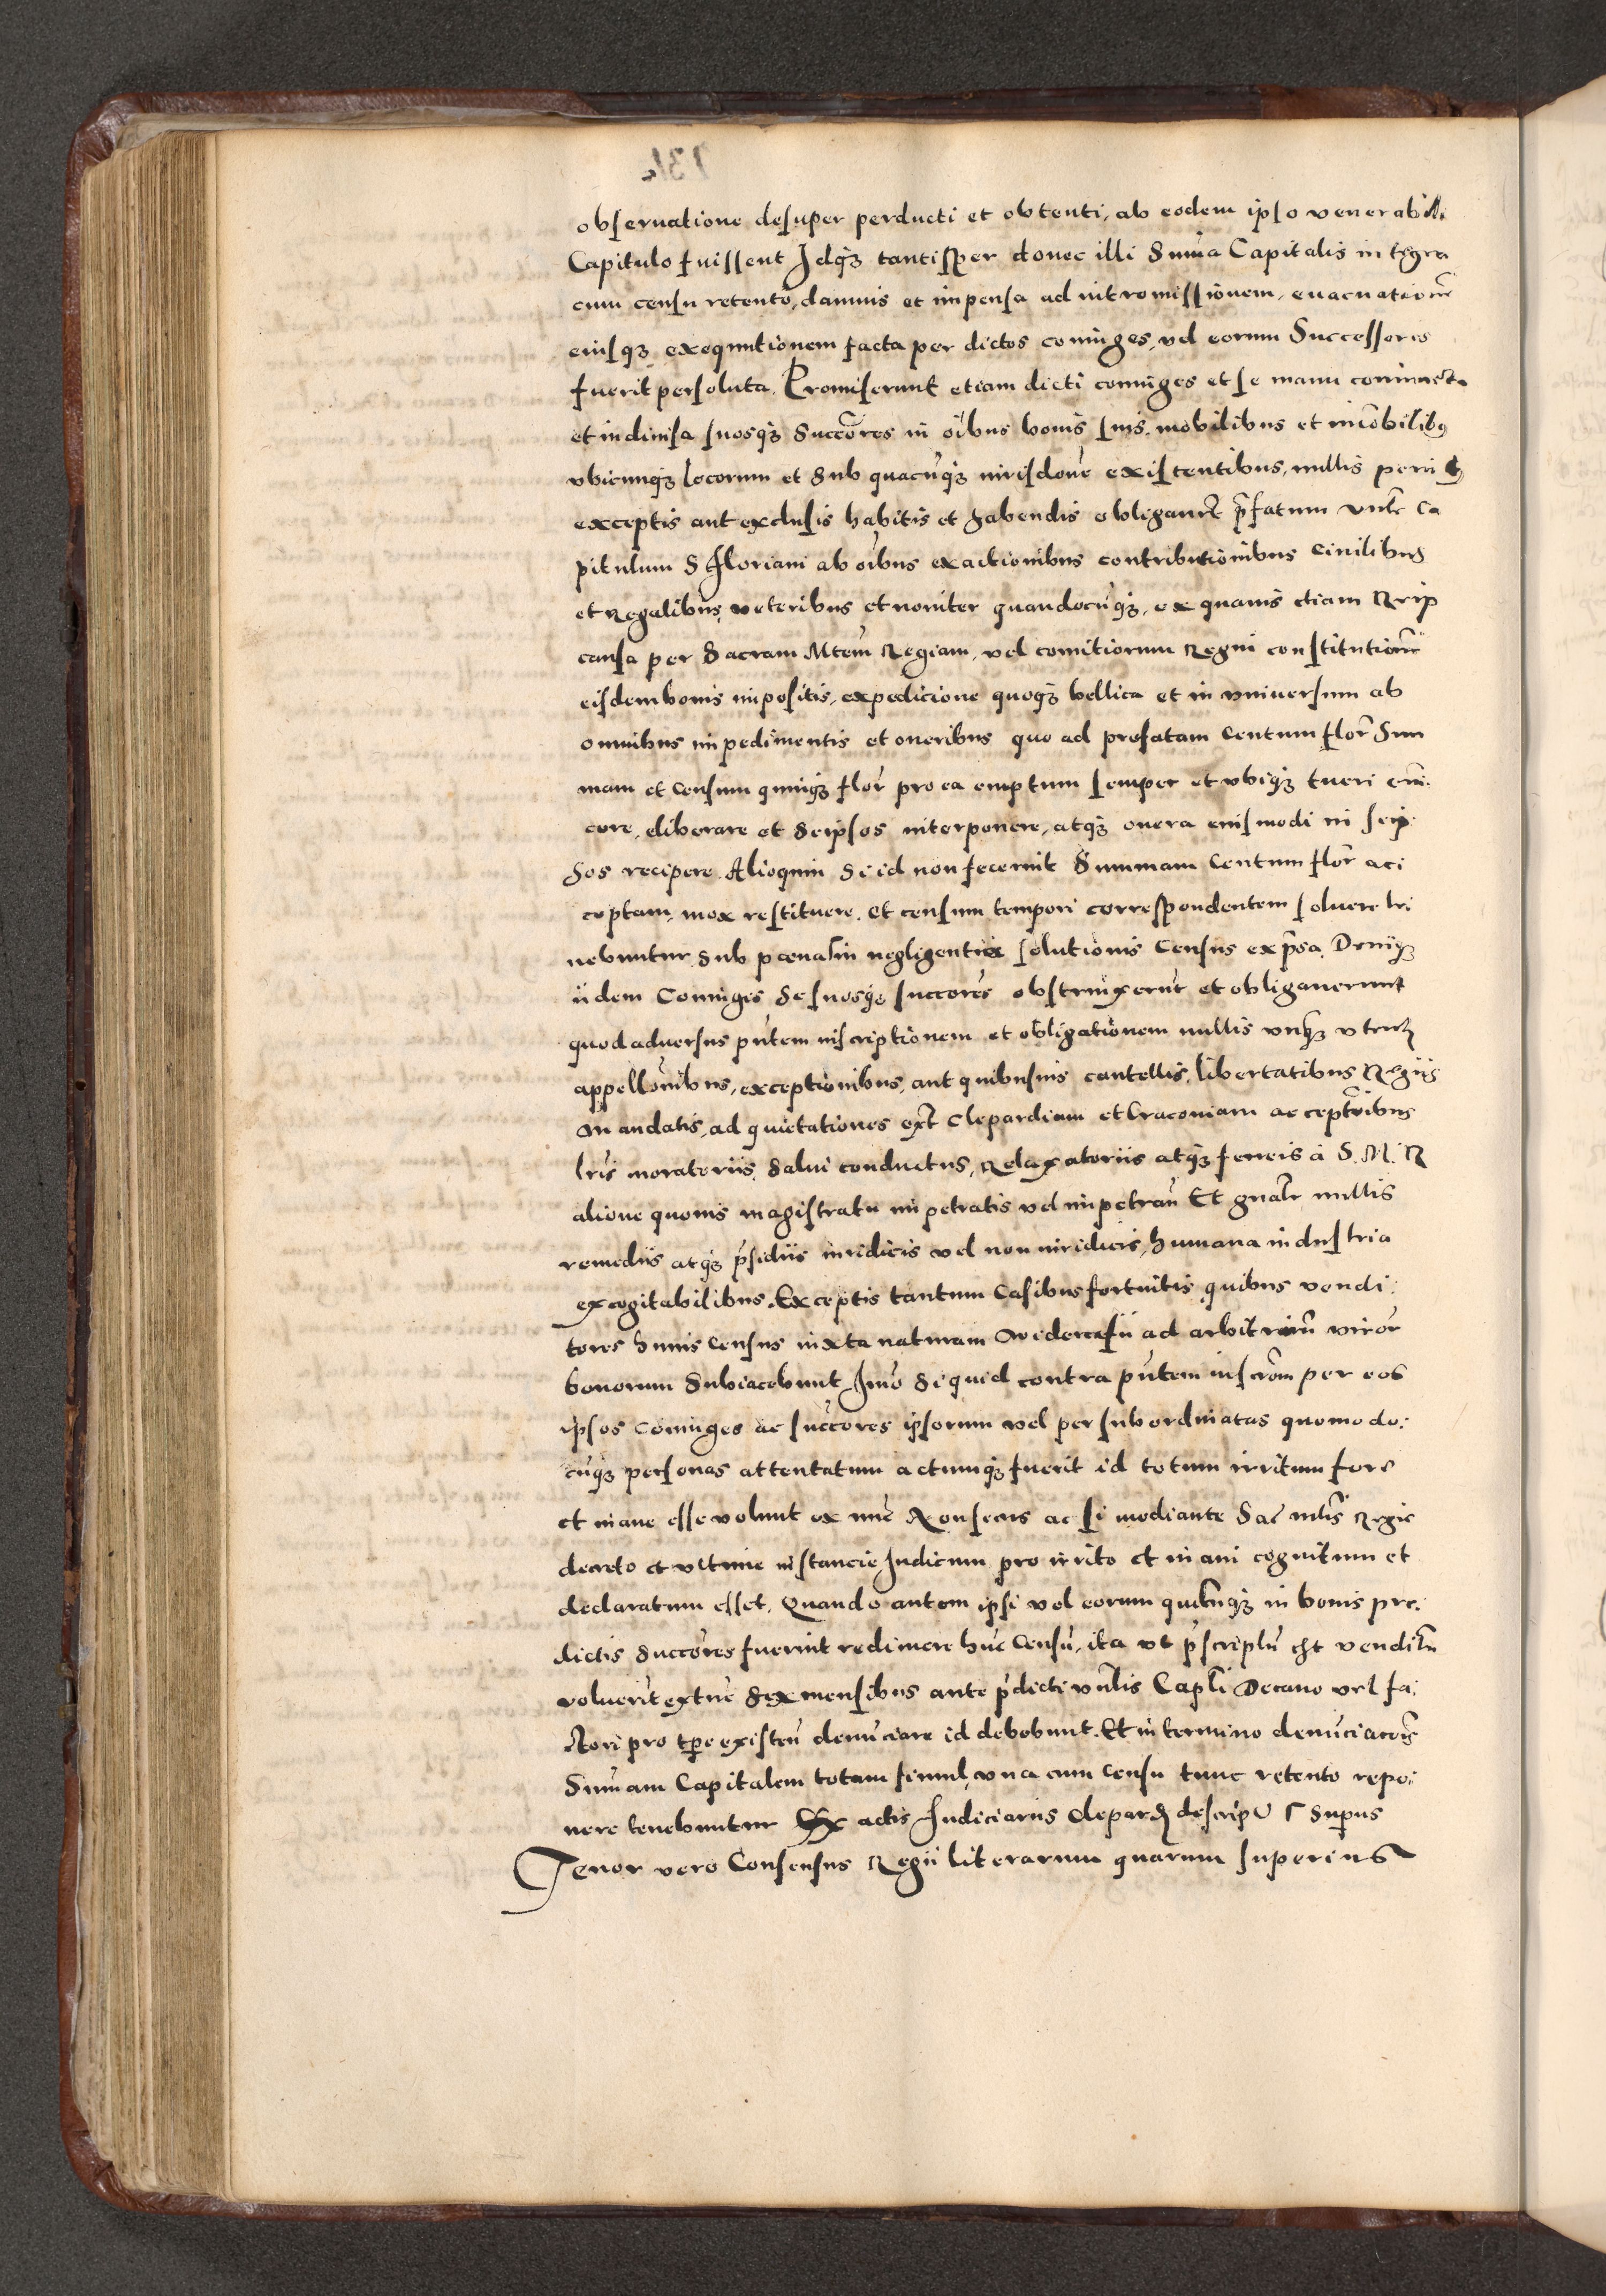 obseruatione desuper perducti et obtenti, ab eodem ipso venerabili
Capitulo fuissent Idq3 tantisper donec illi Suma Capitalis integra
cum censu retento, damnis et impensa ad intromissionem, euacuationẽ
eiusq3 exequutionem facta per dictos coniuges, vel eorum Successores
fuerit persoluta. Promiserunt etiam dicti coniuges et se manu coniuncta
et indiuisa suosq3 Succõres in oĩbus bonis suis, mobilibus et imõbilibus
vbicunq3 locorum et sub quacũq3 iurisdone existentibus, nullis penit9
exceptis aut exclusis habitis et habendis obligarũt p̃fatum vnle Ca
pitulum S Floriani ab oĩbus exactionibus contributionibus Ciuilibus
et Regalibus, veteribus et nouiter quandocũq3, ex quauis etiam Reip
causa per Sacram Mtem Regiam, vel comitiorum Regni constitutionẽ
eisdem bonis impositis, expedicione quoq3 bellica et in vniuersum ab
omnibus impedimentis et oneribus quo ad prefatam Centum flor̃ Sum
mam et Censum quinq3 flor̃ pro ea emptum semper et vbiq3 tueri eui
cere, eliberare et seipsos interponere, atq3 onera eiusmodi in seip
sos recipere. Alioquin Si id non fecerint Summam Centum flor̃ aci
ceptam, mox restituere. et censum tempori correspondentem soluere te
nebuntur, sub poena in negligentia solutionis Census exp̃sa. Deniq3
iidem Coniuges Se suosq3 succõres obstrinxerũt et obligauerunt
quod aduersus pñtem inscriptionem et obligationem nullis vnq3
appellõnibus, exceptionibus, aut quibusuis cautellis, libertatibus Regiis
Mandatis, ad quietationes ext̃ Clepardiam et Cracouiam acceptõribus
lr̃is moratoriis, salui conductus, Relaxatoriis atq3 ferreis a S. M. R
alioue quouis magistratu impetratis vel impetrañ Et gnal̃r nullis
remediis atq3 p̃sidiis iuridicis vel non iuridicis, humana industria
excogitabilibus. Exceptis tantum Casibus fortuitis quibus vendi:
tores huius Census iuxta naturam ad arbitriũ viror̃
bonorum Subiacebunt Imo Si quid contra pñtem inscrõm per eos
ipsos Coniuges ac succõres ipsorum vel per subordinatas quomodo:
cũq3 personas attentatum actumq3 fuerit id totum irritum fore
et inane esse volunt ex nũc ac si mediante Sac mt̃is Regie
decreto et vltime instancie Iudicium pro irrito et inani cognitum et
declaratum esset. Quando autem ipsi vel eorum quicũq3 in bonis pre:
dictis Succõres fuerint redimere hũc Censũ, ita vt p̃scriptũ est venditũ
voluerĩt extũc Sex mensibus ante p̃dicti vnlis Capl̃i Decano vel fa:
ctori pro tp̃e existeñ denũciare id debebunt. Et in termino denũciacõis
Sum̃am Capitalem totam simul vna cum Censu tunc retento repo:
nere tenebuntur Ex actis Iudiciariis Clepard descript
Tenor vero Consensus Regii literarum quarum superius